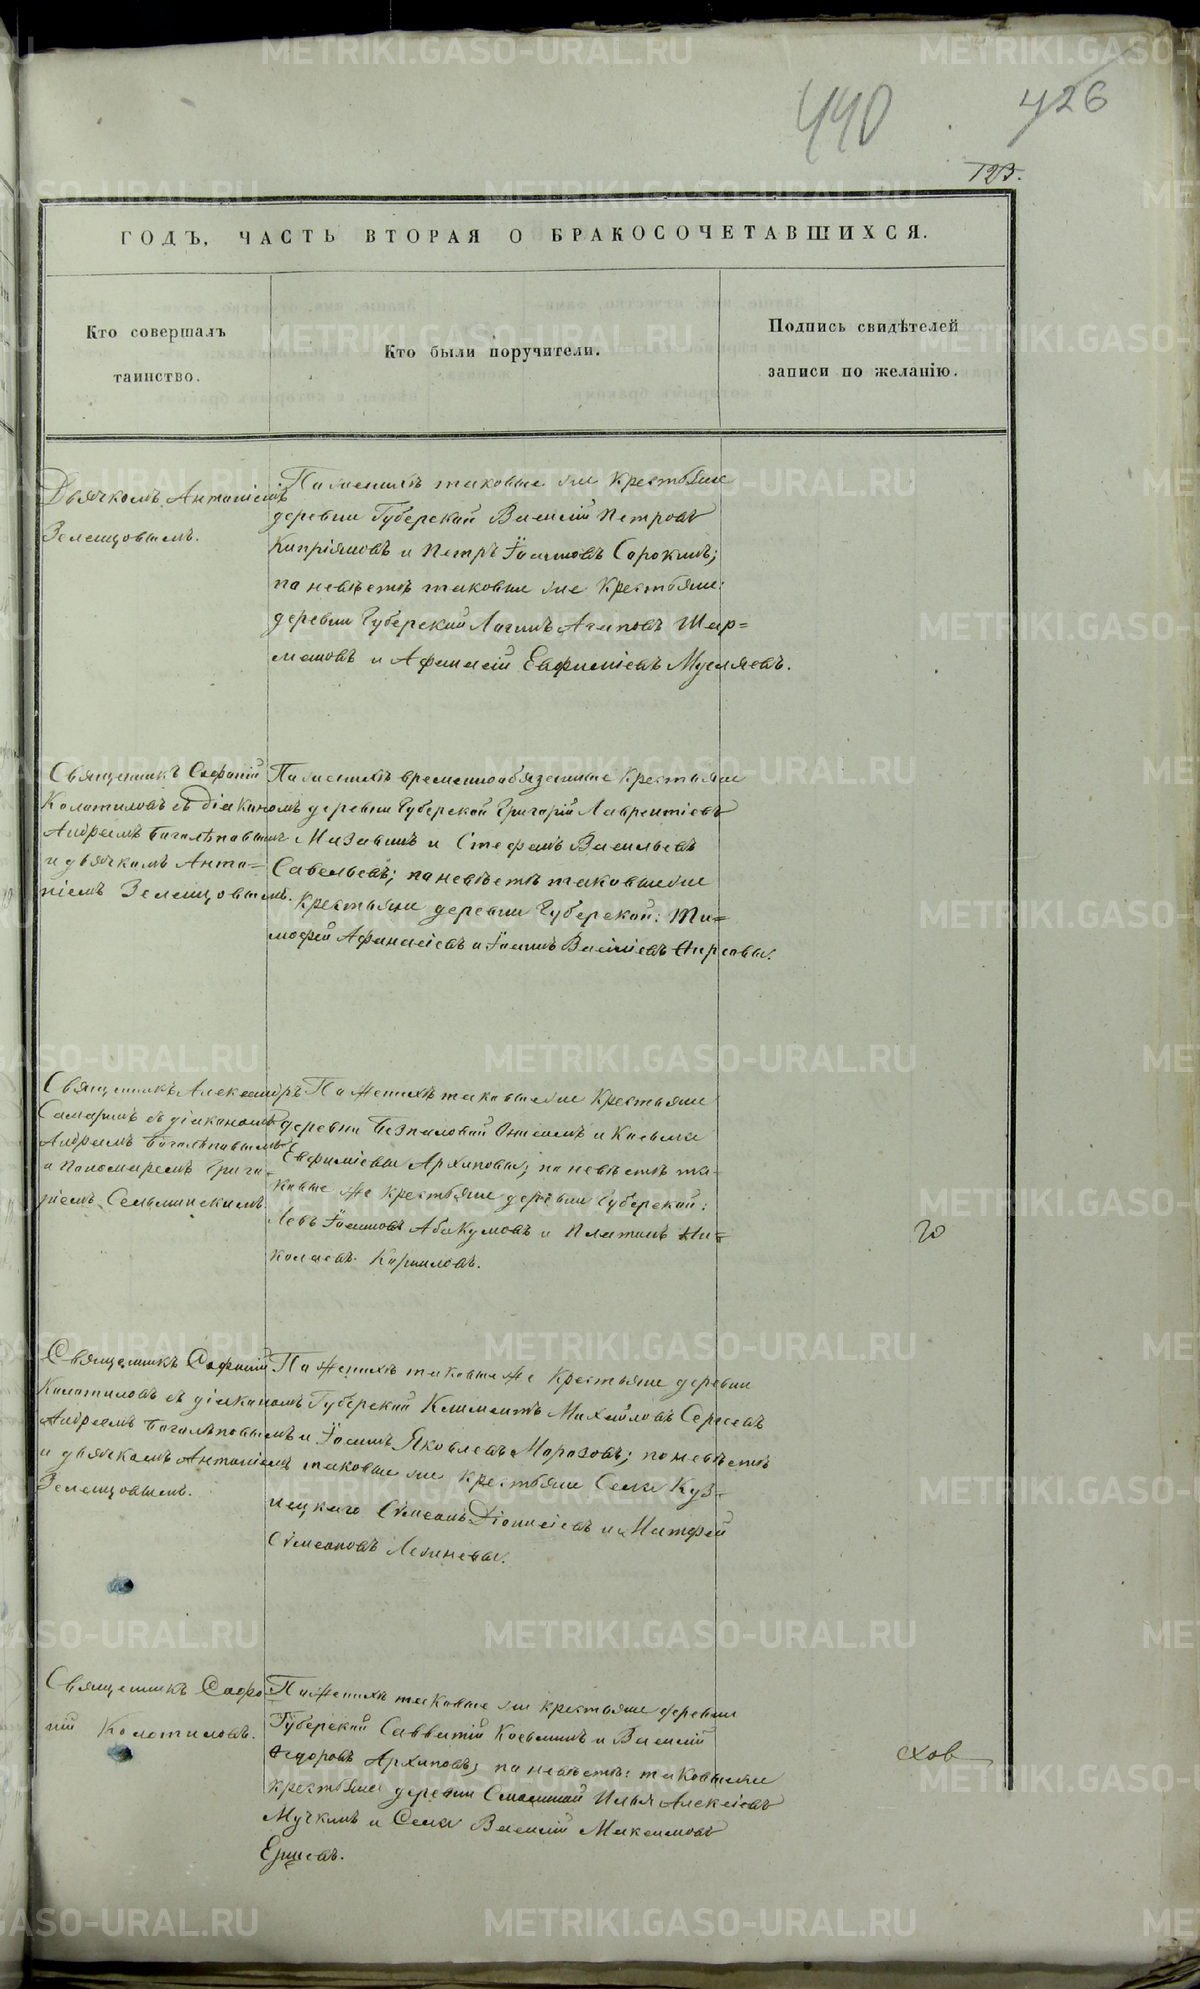 440
426
123.
ГОДЪ, ЧАСТЬ ВТОРАЯ О БРАКОСОЧЕТАВШИХСЯ.
Кто совершалъ
таинство.
Кто были поручители.
Подпись свидѣтелей
записи по желанію.
Дьячкомъ Антоніемъ
Зеленцовымъ.
По женихѣ таковые же крестьяне
деревни Губерской Василій Петровъ
Кипріяновъ и Петръ Іоанновъ Сорокинъ;
по невѣстѣ таковые же крестьяне:
деревни Губерской Логинъ Агаповъ Шар=
мановъ и Афанасій Евфиміевъ Мусляевъ.
Священникъ Софоній
Колотиловъ съ діакономъ
Андреемъ Боголѣповымъ
и дьячкомъ Анто=
ніемъ Зеленцовымъ.
По женихѣ временнообязанные крестьяне
деревни Губерской Григорій Лаврентіевъ
и Стефанъ Васильевъ
Савельевъ; по невѣстѣ таковые же
крестьяне деревни Губерской: Ти=
мофей Афанасіевъ и Іоаннъ Василіевъ
Священникъ Александръ
съ діакономъ
Андреемъ Боголѣповымъ
и Пономаремъ Григо=
ріемъ Сельменскимъ.
По женихѣ таковые же крестьяне
деревни Безпаловой и Косьма
Евфиміевы Архиповы; по невѣстѣ та=
ковые же крестьяне деревни Губерской:
Левъ Іоанновъ Абакумовъ и Платонъ Ни=
колаевъ Корниловъ.
го
Священникъ Софоній
Колотиловъ съ діакономъ
Андреемъ Боголѣповымъ
и дьячкомъ Антоніемъ
Зеленцовымъ.
По женихѣ таковые же крестьяне деревни
Губерской Климентъ Михайловъ Сергѣевъ
и Іоаннъ Яковлевъ Морозовъ; по невѣстѣ
таковые же крестьяне Села Куз=
нецкаго Сѵмеонъ Діонисіевъ и Матфей
Сѵмеоновъ
Священникъ Софо=
ній Колотиловъ.
По женихѣ таковые же крестьяне деревни
Губерской Савватій Косьминъ и Василій
Ѳедоровъ Архиповъ; по невѣстѣ: таковые же
крестьяне деревни Смолиной Илья Алексіевъ
Мучкинъ и Села Василій Максимовъ
схов